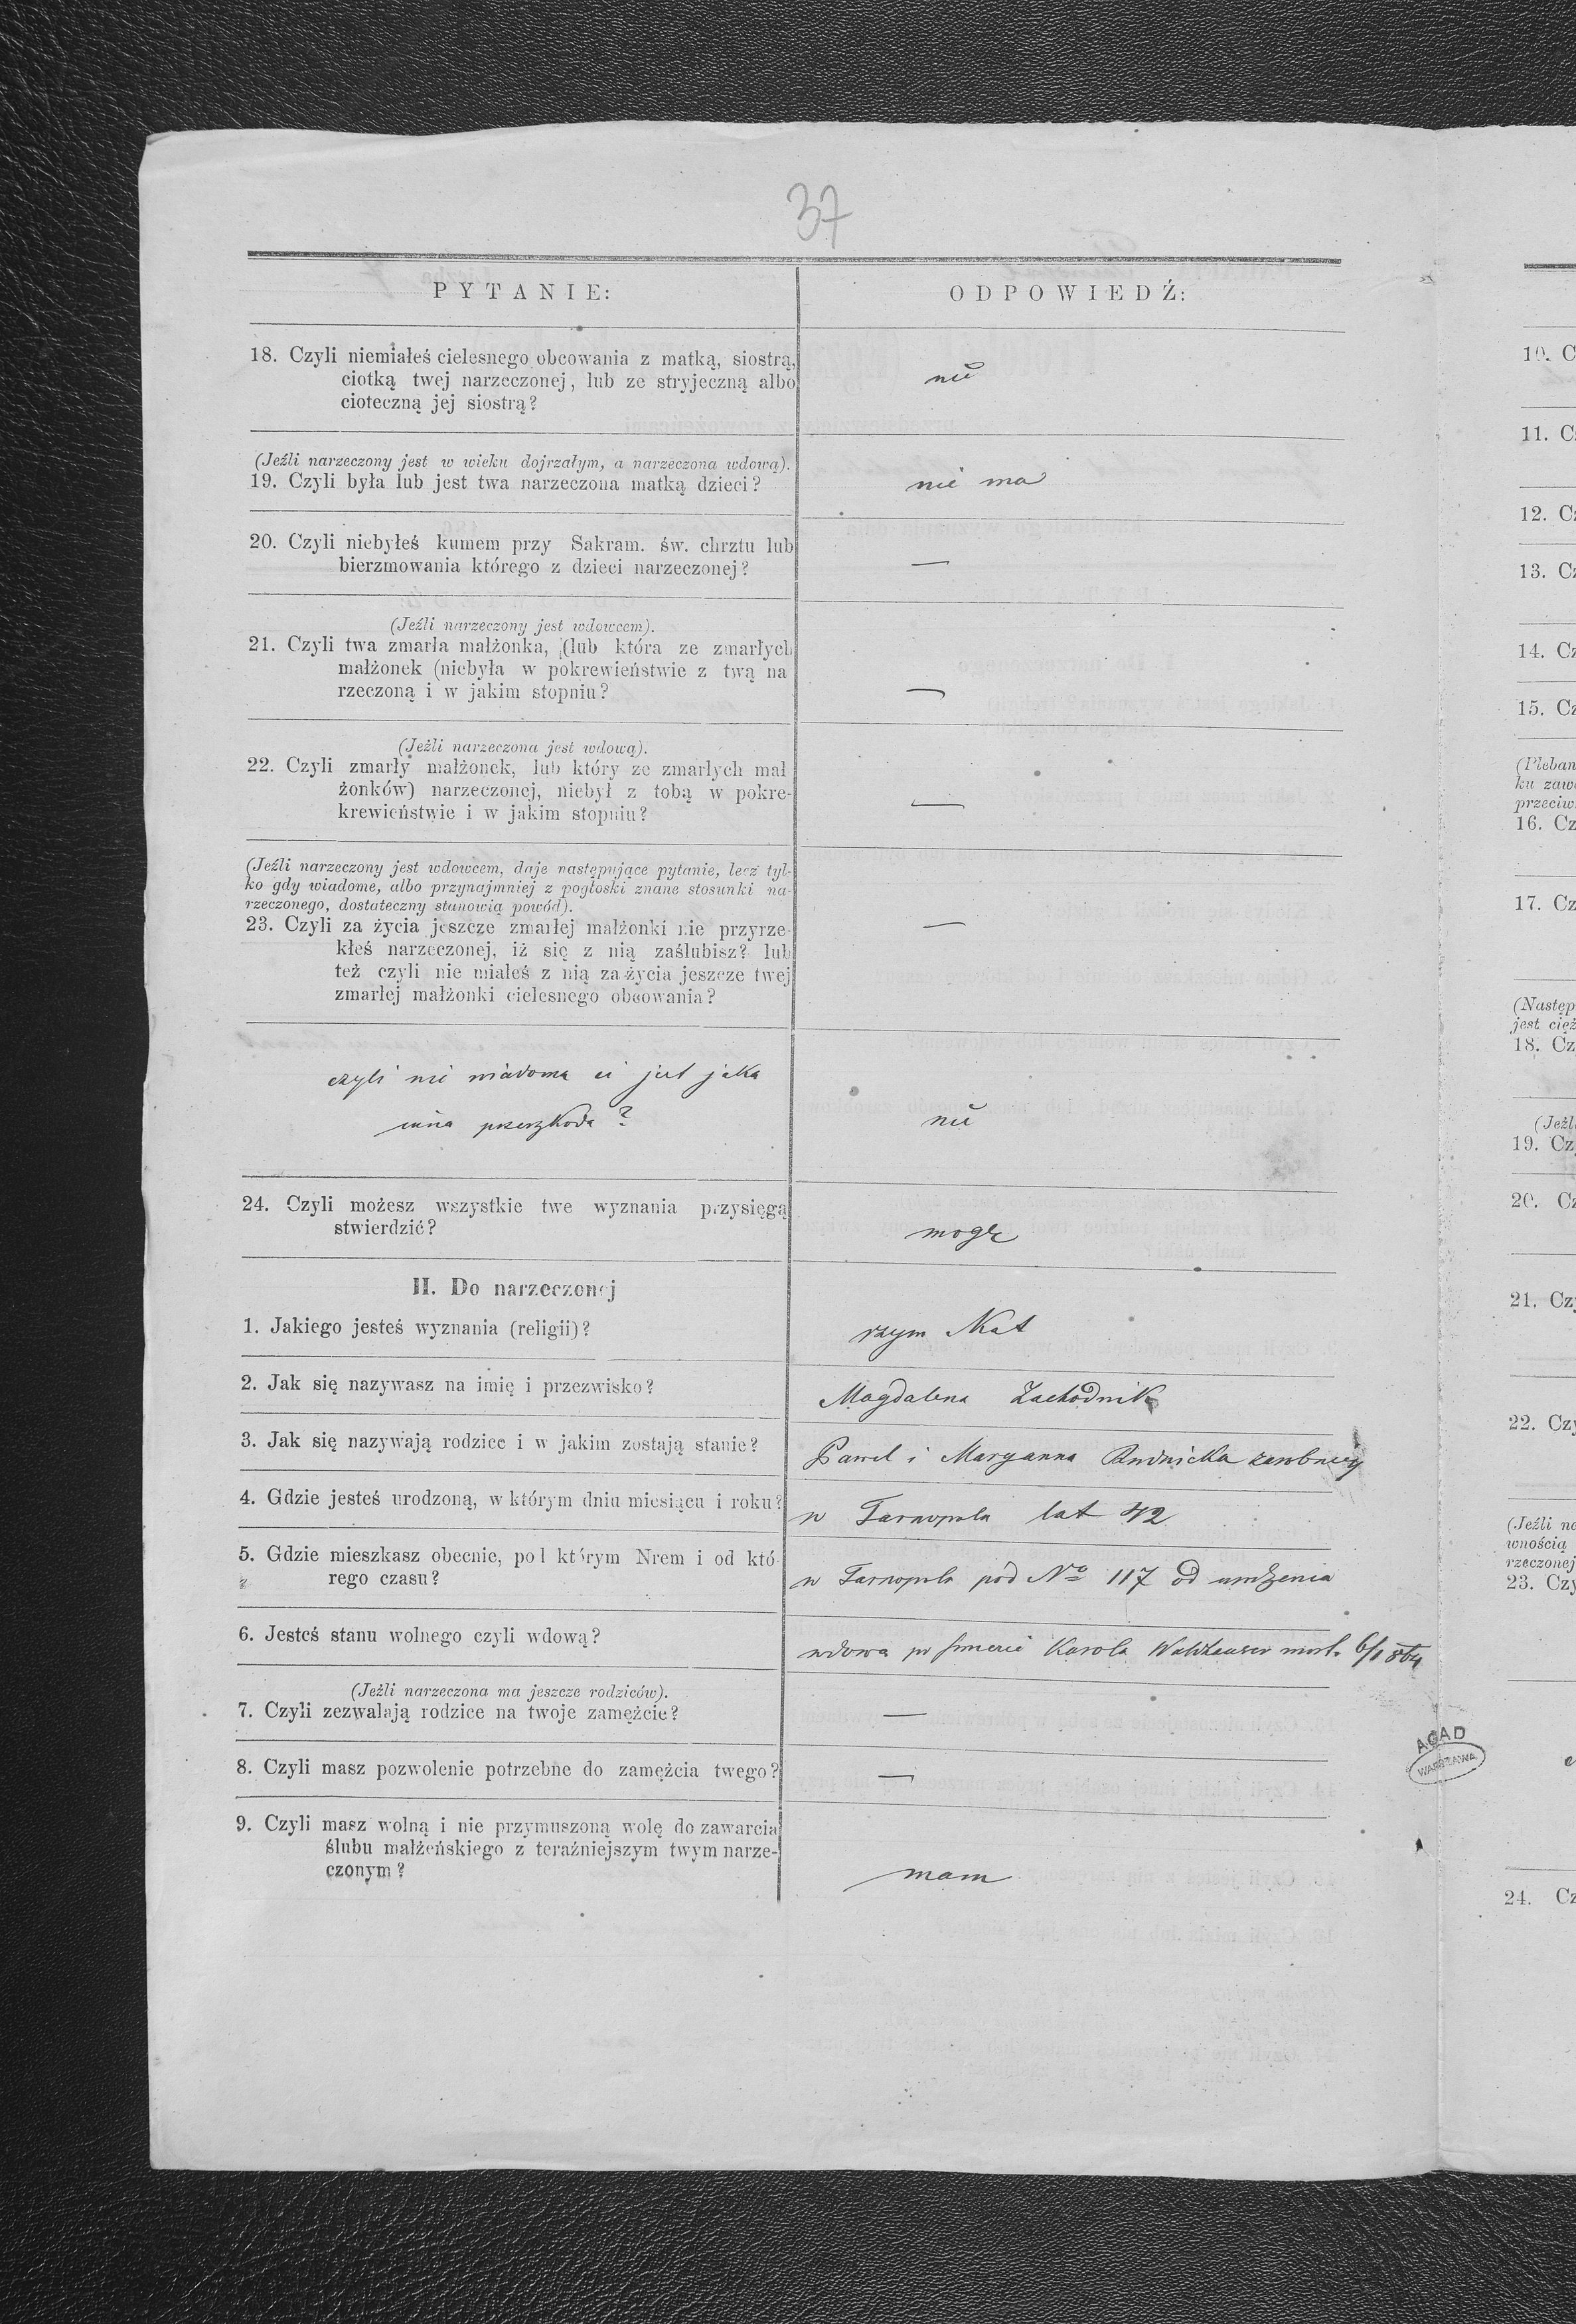 37
PYTANIE:
ODPOWIEDŹ:
18. Czyli niemiałeś cielesnego obcowania z matką, siostrą,
ciotką twej narzeczonej, lub ze stryjeczną albo
cioteczną jej siostrą?
nie
(Jeźli narzeczony jest w wieku dojrzałym, a narzeczona wdową).
19. Czyli była lub jest twa narzeczona matką dzieci?
nie ma
20. Czyli niebyłeś kumem przy Sakram. św. chrztu lub
bierzmowania którego z dzieci narzeczonej?
—
(Jeźli narzeczony jest wdowcem).
21. Czyli twa zmarła małżonka, (lub która ze zmarłych
małżonek (niebyła w pokrewieństwie z twą na
rzeczoną i w jakim stopniu?
—
(Jeźli narzeczona jest wdową).
22. Czyli zmarły małżonek, lub który ze zmarłych mał
żonków) narzeczonej, niebył z tobą w pokre-
krewieństwie i w jakim stopniu?
—
(Jeźli narzeczony jest wdowcem, daje następujące pytanie, lecz tyl-
ko gdy wiadome, albo przynajmniej z pogłoski znane stosunki na-
rzeczonego, dostateczny stanowią powód).
23. Czyli za życia jeszcze zmarłej małżonki nie przyrze-
kłeś narzeczonej, iż się z nią zaślubisz? lub
też czyli nie miałeś z nią za życia jeszcze twej
zmarłej małżonki cielesnego obcowania?
—
czyli nie wiadoma ci jest jaka
inna przeszkoda?
nie
24. Czyli możesz wszystkie twe wyznania przysięgą
stwierdzić?
mogę
II. Do narzeczonej
1. Jakiego jesteś wyznania (religii)?
rzym Kat
2. Jak się nazywasz na imię i przezwisko?
Magdalena Zachodnik
3. Jak się nazywają rodzice i w jakim zostają stanie?
Paweł i Maryanna Rudnicka zarobnicy
4. Gdzie jesteś urodzoną, w którym dniu miesiącu i roku?
w Tarnopolu lat 42
5. Gdzie mieszkasz obecnie, pod którym Nrem i od któ-
rego czasu?
w Tarnopolu pod No 117 od urodzenia
6. Jesteś stanu wolnego czyli wdową?
wdowa po śmierci Karola Walzhauser mort. 6/1 864
(Jeźli narzeczona ma jeszcze rodziców).
7. Czyli zezwalają rodzice na twoje zamężcie?
—
8. Czyli masz pozwolenie potrzebne do zamężcia twego?
—
9. Czyli masz wolną i nie przymuszoną wolę do zawarcia
ślubu małżeńskiego z teraźniejszym twym narze-
czonym?
mam
AGAD
WARSZAWA
10. C
11. C
12. C
13. Cz
14. Cz
15. Cz
(Pleban
ku zaw
przeciw
16. Cz
17. Cz
(Następ
jest cięż
18. Cz
(Jeźl
19. Cz
20. Cz
21. Czy
22. Czy
(Jeźli na
wnością
rzeczonej
23. Czy
24. Cz